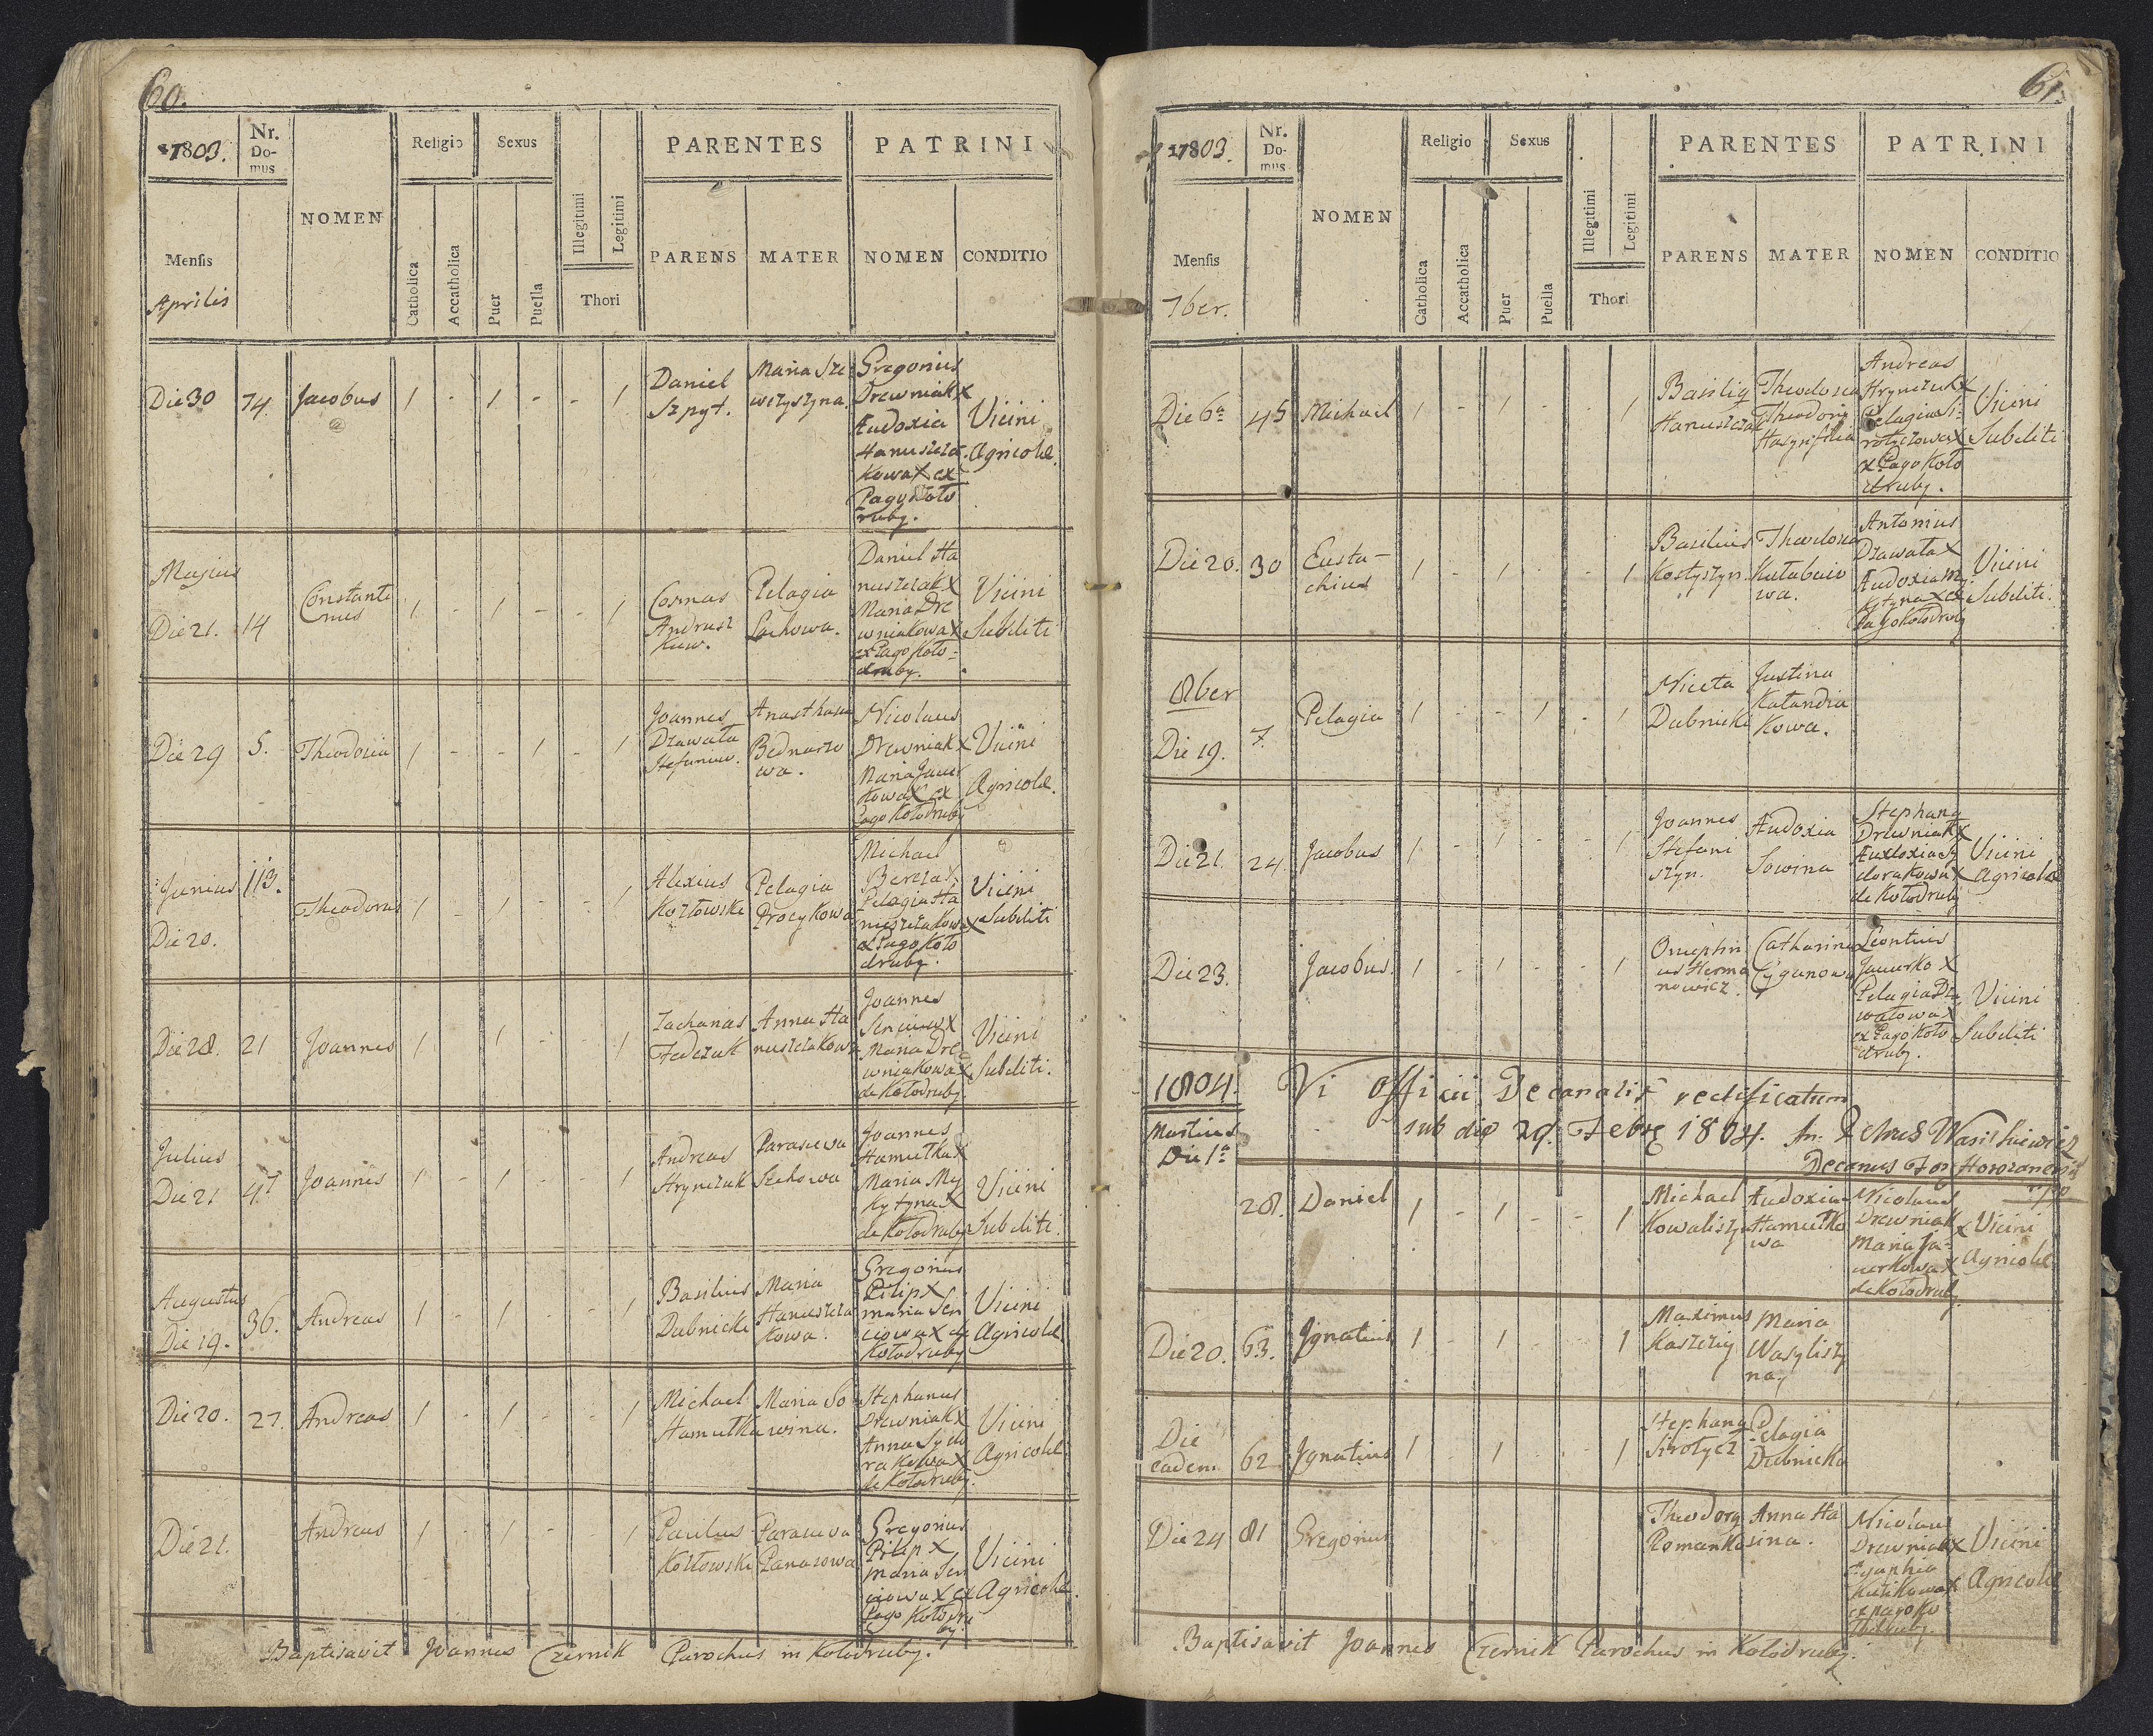 60.
1803.
Nr. Do-
mus
NOMEN
Religio
Sexus
Illegitimi
Legitimi
PARENTES
PATRINI
Mensis
Catholica
Accatholica
Puer
Puella
Thori
PARENS
MATER
NOMEN
CONDITIO
Aprilis
Die 30 74. Jacobus 1 - 1 - - 1
Daniel
Szpyt.
Maria
Gregorius
Drewniak X
Audoxia
Hanuszcza
kowa X ex
Pago Koło
ruby.
Vicini
Agricolæ.
Majus
Die 21. 14 Constanti
nus 1 - 1 - - 1
Cosmas
Andrusz
kuw.
Pelagia
Lachowa.
Daniel Ha
nuszczak X
Maria Dre
wniakowa X
ex Pago Koło-
druby.
Vicini
Subditi
Die 29 5. Theodosia 1 - - 1 - 1
Joannes
Dzawała
Stefanuw.
Anasthasia
Bednarzo
wa.
Nicolaus
Drewniak X
Maria Jawor
kowa X ex
Pago Kołodruby
Vicini
Agricolæ.
Junius 113.
Die 20.
Theodorus 1 - 1 - - 1
Alexius
Kozłowski
Pelagia
Procykowa
Michael
Bereza X
Pelagia Ha
nuszczakowa X
ex Pago Koło
druby.
Vicini
Subditi
Die 28. 21 Joannes 1 1 1
Zacharias
Fedczuk
Anna Ha
nuszczakowa
Joannes
Senciuw X
Maria Dre
wniakowa X
de Kołodruby.
Vicini
Subditi.
Julius
Die 21 47 Joannes 1 - 1 - - 1
Andreas
Hrynczuk
Parascewa
Szehowa
Joannes
Hamułka X
Maria My
kytyna X
de Kołodruby
Vicini
Subditi.
Augustus
Die 19. 36. Andreas 1 - 1 - - 1
Basilius
Dubnicki
Maria
Hanuszcza
kowa.
Gregorius
Pilip X
Maria Sen
ciowa X de
Kołodruby
Vicini
Agricolæ
Die 20. 27. Andreas 1 - 1 - - 1
Michael
Hamułka
Maria So
wina.
Stephanus
Drewniak X
Anna Sydo
rakowa X
de Kołodruby.
Vicini
Agricolæ.
Die 21. Andreas 1 - 1 - - 1
Basilius
Kozłowski
Parascewa
Panasowa
Gregorius
Pilip X
Maria Sen
ciowa X ex
Pago Kołodru
by.
Vicini
Agricolæ.
Baptisavit Joannes Czernik Parochus in Kołodruby.
61.
1803.
Nr.
Do-
mus
NOMEN
Religio
Sexus
Illegitimi
Legitimi
PARENTES
PATRINI
Mensis
Catholica
Accatholica
Puer
Puella
Thori
PARENS
MATER
NOMEN
CONDITIO
7ber.
Die 6ª 45 Michael 1 - 1 - - 1
Basilig
Hanuszczak
Theodosia
Theodori
filia
Andreas
Hrynczuk X
Pelagia Si-
rotyczowa X
ex Pago Koło
druby.
Vicini
Subditi
Die 20. 30 Eusta-
chius 1 - 1 - - 1
Basilius
Kostyszyn.
Theodosia
Kułabaio
wa.
Antonius
Dzawała X
Audoxia My-
kytyna X ex
Pago Kołodruby
Vicini
Subditi.
8ber
Die 19. 7. Pelagia 1 - - 1 - 1
Niceta
Dubnicki
Justina
Katandia
kowa.
Die 21. 24. Jacobus 1 - 1 - - 1
Joannes
Stefani
szyn.
Audoxia
Sowina
Stephang
Drewniak X
Audoxia Sy
dorakowa X
de Kołodruby
Vicini
Agricolæ
Die 23. Jacobus. 1 - 1 - - 1
Onuphri
us Herma
nowicz.
Catharina
Cyganowa
Leontius
Jaworko X
Pelagia Dza
wałowa X
ex Pago Koło
druby.
Vicini
Subditi
1804. Vi Officii Decanalis rectificatum
sub die 29. Febr 1804. Petrus Wasilkiewicz
Decanus
Martius
Die 1ª
28. Daniel 1 - 1 - - 1
Michael
Kowaliszyn
Audoxia
Hamułko
wa
Nicolaus
Drewniak X
Maria Ja-
workowa X
de Kołodruby
Vicini
Agricolæ
Die 20. 63. Ignatius 1 - 1 - - 1
Maximus
Kaszczig
Maria
Wasyliszy
na.
Die
eadem 62 Ignatius 1 - 1 - - 1
Stephang
Sirotycz
Pelagia
Dubnicka
Die 24 81 Gregorius
Theodorg
Romanko
Anna Ha
sina.
Nicolaus
Drewniak X
Agaphia
Kulikowa X
ex pago Ko
łodruby.
Vicini
Agricolæ
Baptisavit Joannes Czernik Parochus in Kołodruby.